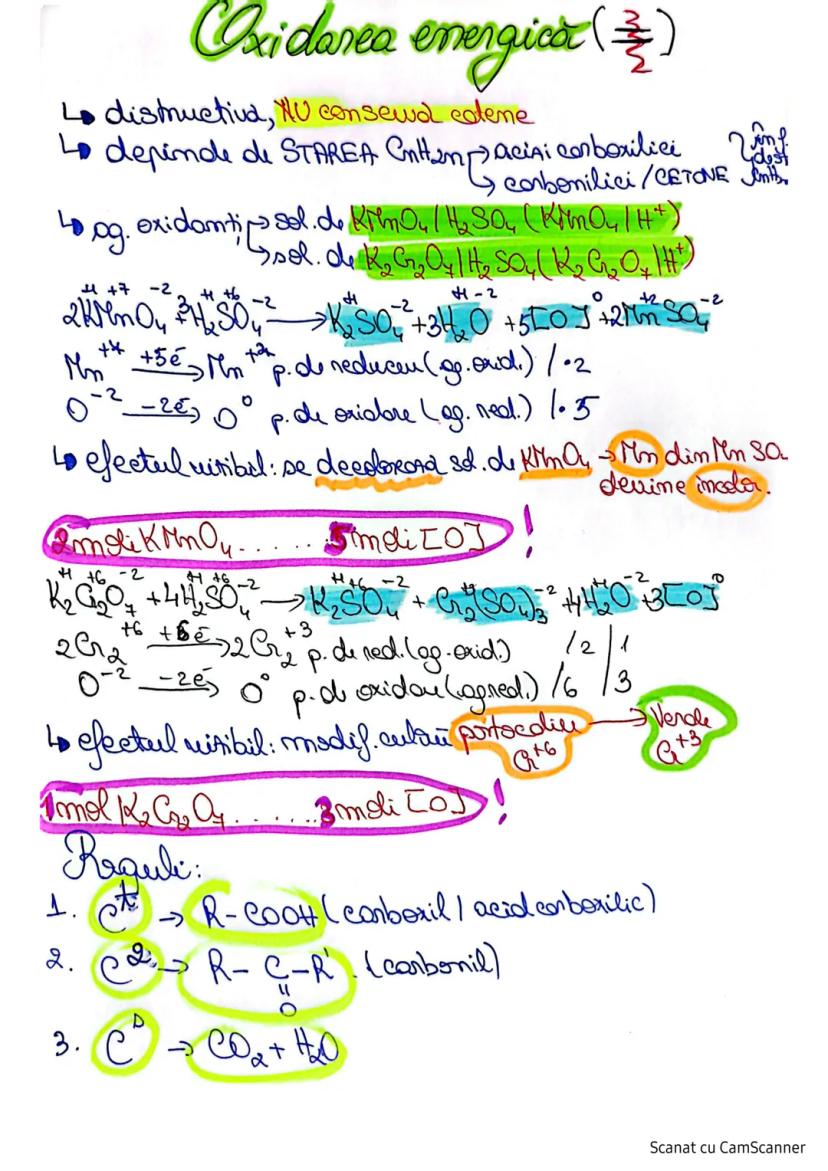 Oxidarea energică (3/2)
↳ distructivă, NU conservă catene
↳ depinde de STAREA CnH2n → acizi carboxilici
↳ carbonilici / CETONE
↳ ag. oxidanți → sol. de KMnO4 / H2SO4 (KMnO4 / H+)
↳ sol. de K2Cr2O7 / H2SO4 (K2Cr2O7 / H+)
2KMnO4 + 3H2SO4 → K2SO4 + 3H2O + 5[O] + 2MnSO4
Mn+7 +5e̅→ Mn+2 p. de reducere (ag. oxid.) / · 2
O-2 -2e̅→ O0 p. de oxidare (ag. red.) / · 5
↳ efectul vizibil: se decolorează sol. de KMnO4 → Mn din MnSO4
devine incolor.
2 moli KMnO4 ...... 5 moli [O] !
K2Cr2O7 + 4H2SO4 → K2SO4 + Cr2(SO4)3 + 4H2O + 3[O]
2Cr2+6 +6e̅→ 2Cr2+3 p. de red. (ag. oxid.) / 2 | 1
O-2 -2e̅→ O0 p. de oxidare (ag red.) / 6 | 3
↳ efectul vizibil: modif. culorii portocaliu → Verde
Cr+6 Cr+3
1 mol K2Cr2O7 ...... 3 moli [O] !
Reguli:
1. Ct → R-COOH (carboxil / acid carboxilic)
2. → R-C-R' (carbonil)
=
O
3. → CO2 + H2O
Scanat cu CamScanner